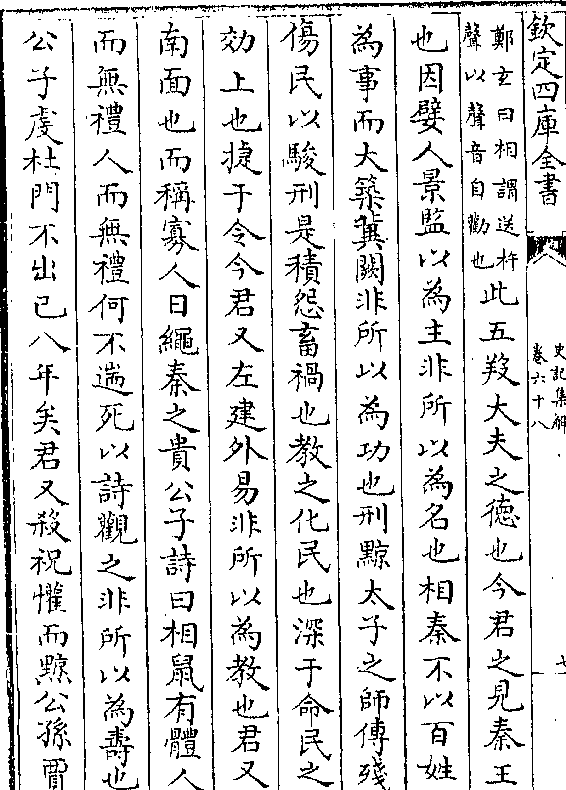 欽定四庫全書
史記集解
卷六十八
七
鄭玄曰相謂送杵
聲以聲音自勸也
此五羖大夫之德也今君之見秦王
也因嬖人景監以為主非所以為名也相秦不以百姓
為事而大築冀闕非所以為功也刑黥太子之師傅殘
傷民以駿刑是積怨畜禍也教之化民也深于命民之
効上也捷于令今君又左建外易非所以為教也君又
南面也而稱寡人日繩秦之貴公子詩曰相鼠有體人
而無禮人而無禮何不遄死以詩觀之非所以為壽也
公子虔杜門不出已八年矣君又殺祝懽而黥公孫賈